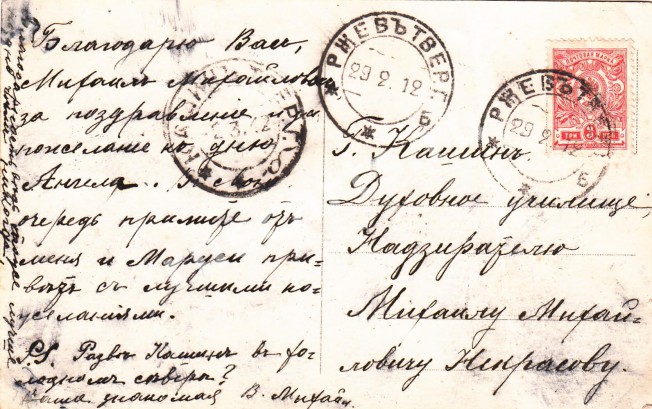 Благодарю Васъ,
Михаилъ Михайловичъ
за поздравленіе и
пожеланіе къ дню
Ангела. Въ мою
очередь примите отъ
меня и Маруси при-
вѣтъ съ лучшими по-
желаніями.
P.S. Развѣ Кашинъ въ хо-
лодномъ сѣверѣ?
Ваша знакомая В. Михайл.
РЖЕВЪ ТВЕР.
29 2 12
Б
КАШИНЪ ТВЕР.
2.3.12
РЖЕВЪ ТВ
29 2 12
Б
ПОЧТОВАЯ МАРКА
ТРИ 3 КОП.
Г. Кашинъ.
Духовное училище,
Надзирателю
Михаилу Михай-
ловичу Некрасову.